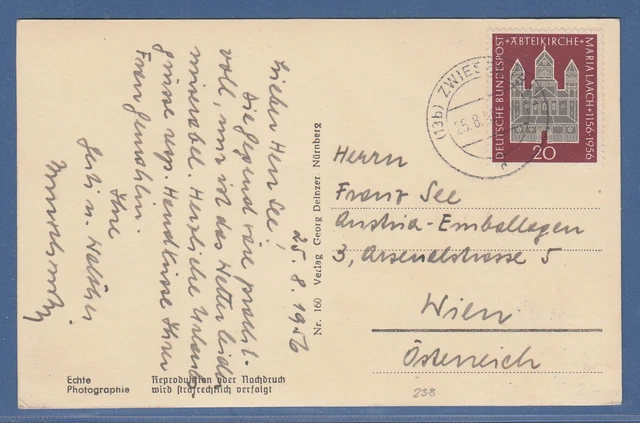 25. 8. 1956
Lieber Herr See,
die Gegend wäre pracht-
voll, nur ist das Wetter leider
miserabel. Herzliche Urlaubs-
grüsse resp. Handküsse Ihrer
Frau Gemahlin.
Ihre
u. Walther
Echte
Photographie
Reproduktion oder Nachdruck
wird strafrechtlich verfolgt
Nr. 160 Verlag Georg Deinzer, Nürnberg
(13b) ZWIES
25.8.
DEUTSCHE BUNDESPOST
+ABTEIKIRCHE+
MARIA LAACH+1156-1956
20
Herrn
Franz See
Austria-Emballagen
3, Arsenalstrasse 5
Wien
Österreich
238